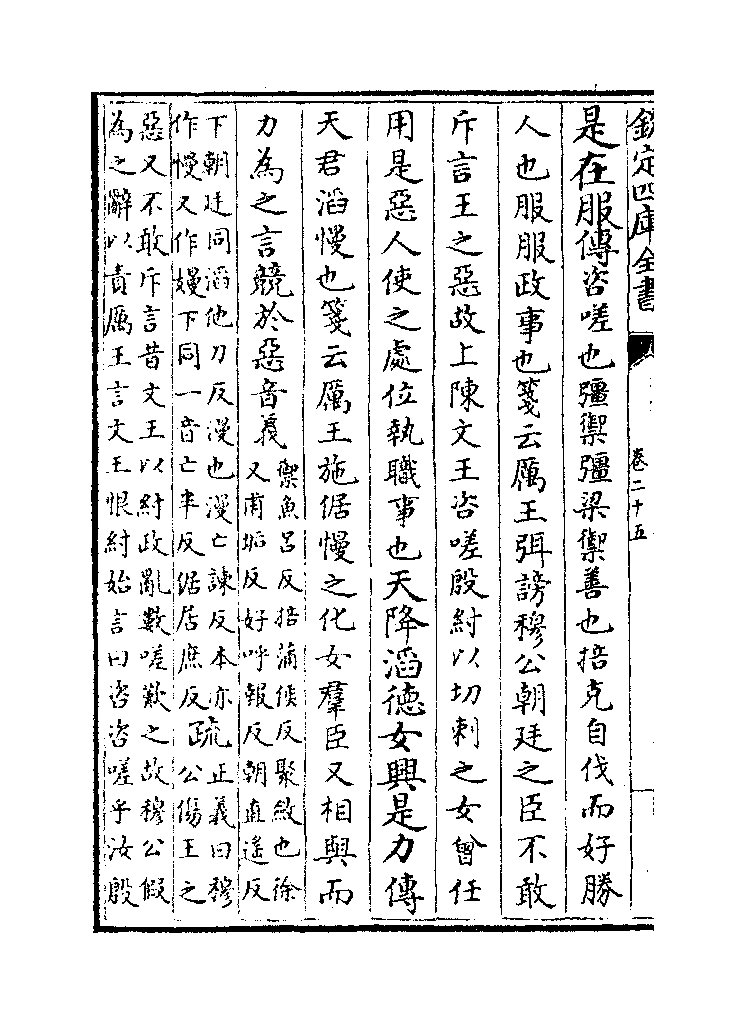 欽定四庫全書
卷二十五
是在服傳咨嗟也彊禦彊梁禦善也掊克自伐而好勝
人也服服政事也箋云厲王弭謗穆公朝廷之臣不敢
斥言王之惡故上陳文王咨嗟殷紂以切刺之女曾任
用是惡人使之處位執職事也天降滔德女興是力傳
天君滔慢也箋云厲王施倨慢之化女羣臣又相與而
力為之言競於惡音義
禦魚呂反掊蒲侯反聚斂也徐
又甫垢反好呼報反朝直遙反
下朝廷同滔他刀反漫也漫亡諫反本亦
作慢又作嫚下同一音亡半反倨居庶反疏正義曰穆
公傷王之
惡又不敢斥言昔文王以紂政亂數嗟歎之故穆公假
為之辭以責厲王言文王恨紂始言曰咨咨嗟乎汝殷